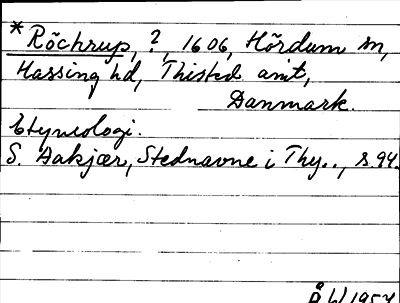 * Röchrup, ?, 1606, Hördum sn,
Hassing hd, Thisted amt,
Danmark.
Etymologi.
S. Aakjær, Stednavne i Thy.., s.94.